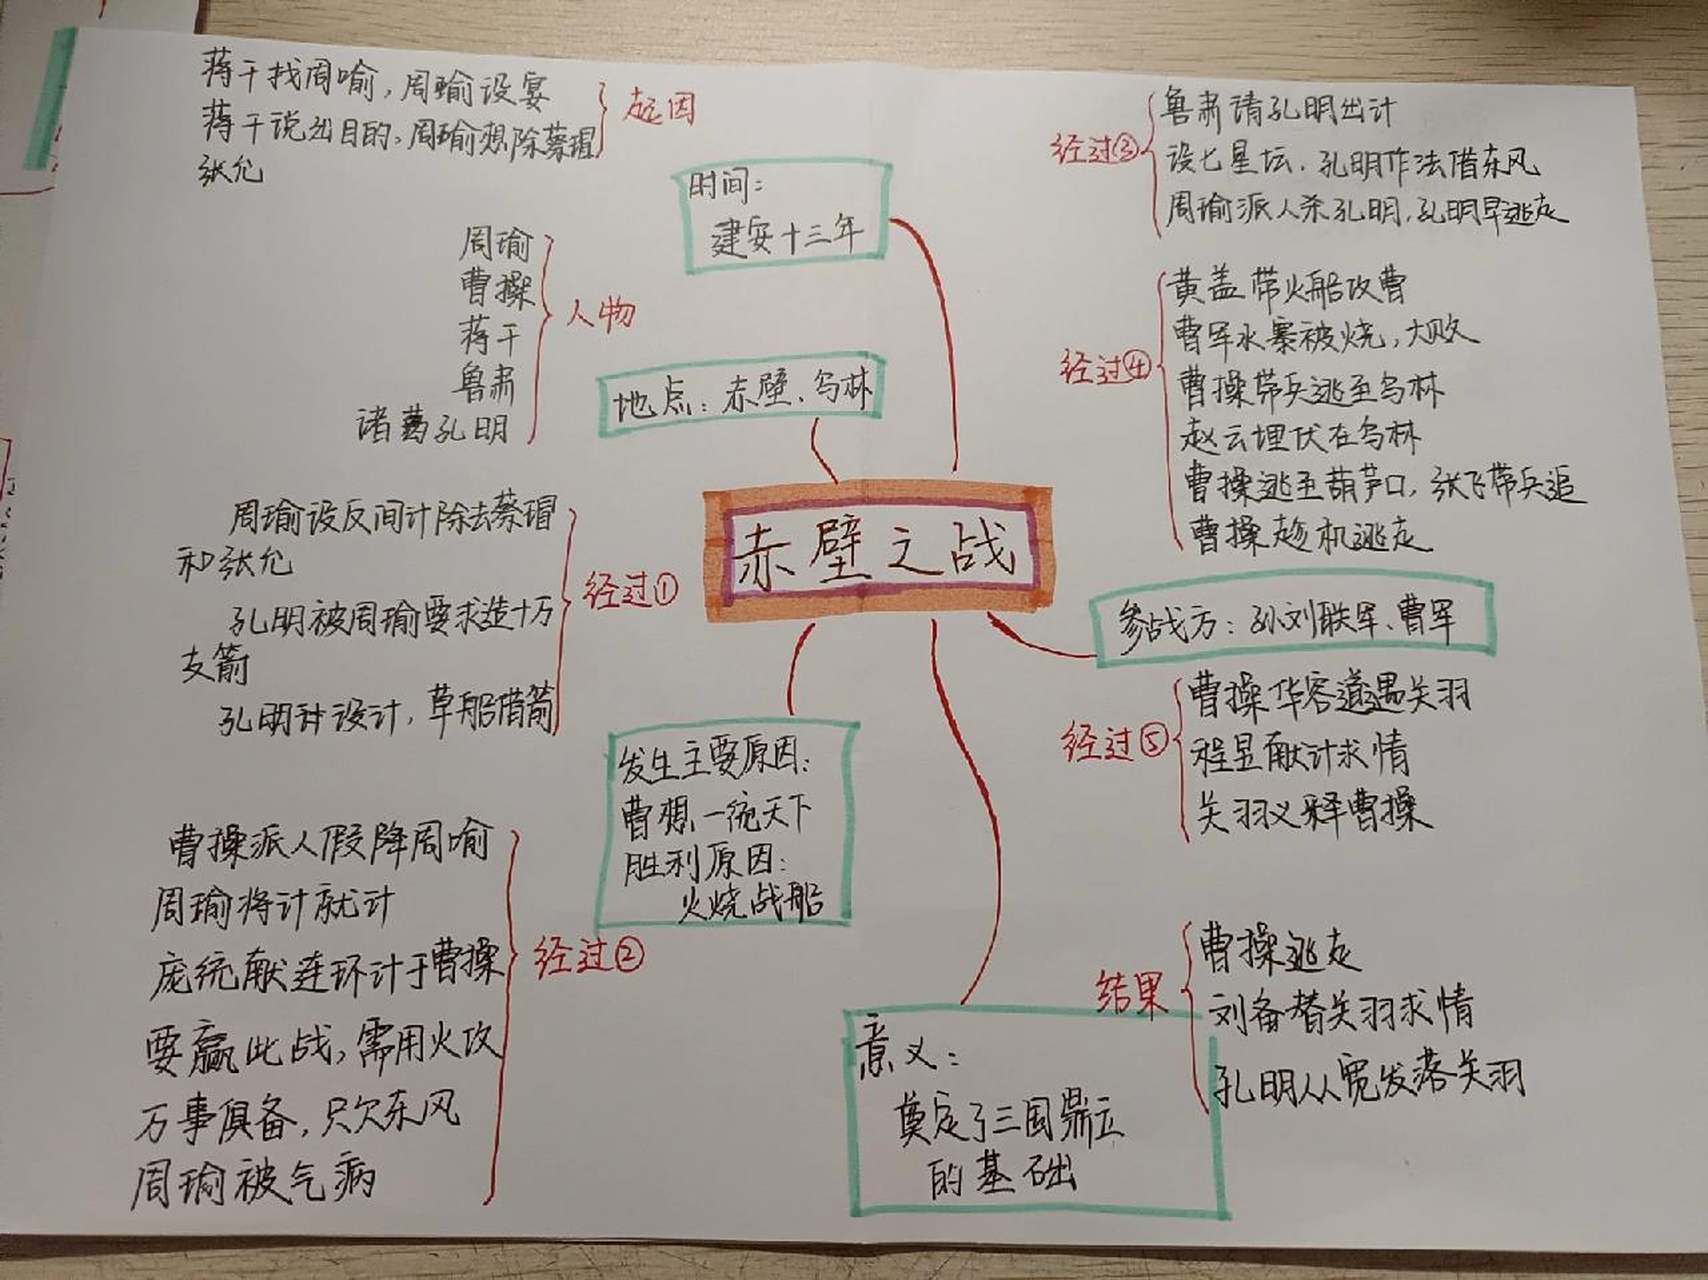 蒋干找周喻，周瑜设宴
蒋干说出目的，周瑜想除蔡瑁
张允
起因
时间：
建安十三年
周瑜
曹操
蒋干
鲁肃
诸葛孔明
人物
地点：赤壁、乌林
赤壁之战
周瑜设反间计除去蔡瑁
和张允
孔明被周瑜要求造十万
支箭
孔明种设计，草船借箭
经过①
发生主要原因：
曹想一统天下
胜利原因：
火烧战船
曹操派人假降周喻
周瑜将计就计
庞统献连环计于曹操
要赢此战，需用火攻
万事俱备，只欠东风
周瑜被气病
经过②
经过③
鲁肃请孔明出计
设七星坛，孔明作法借东风
周瑜派人杀孔明，孔明早逃走
经过④
黄盖带火船攻曹
曹军水寨被烧，大败
曹操带兵逃至乌林
赵云埋伏在乌林
曹操逃至葫芦口，张飞带兵追
曹操趁机逃走
参战方：孙刘联军、曹军
经过⑤
曹操华容道遇关羽
程昱献计求情
关羽义释曹操
结果
曹操逃走
刘备替关羽求情
孔明从宽发落关羽
意义：
奠定了三国鼎立
的基础